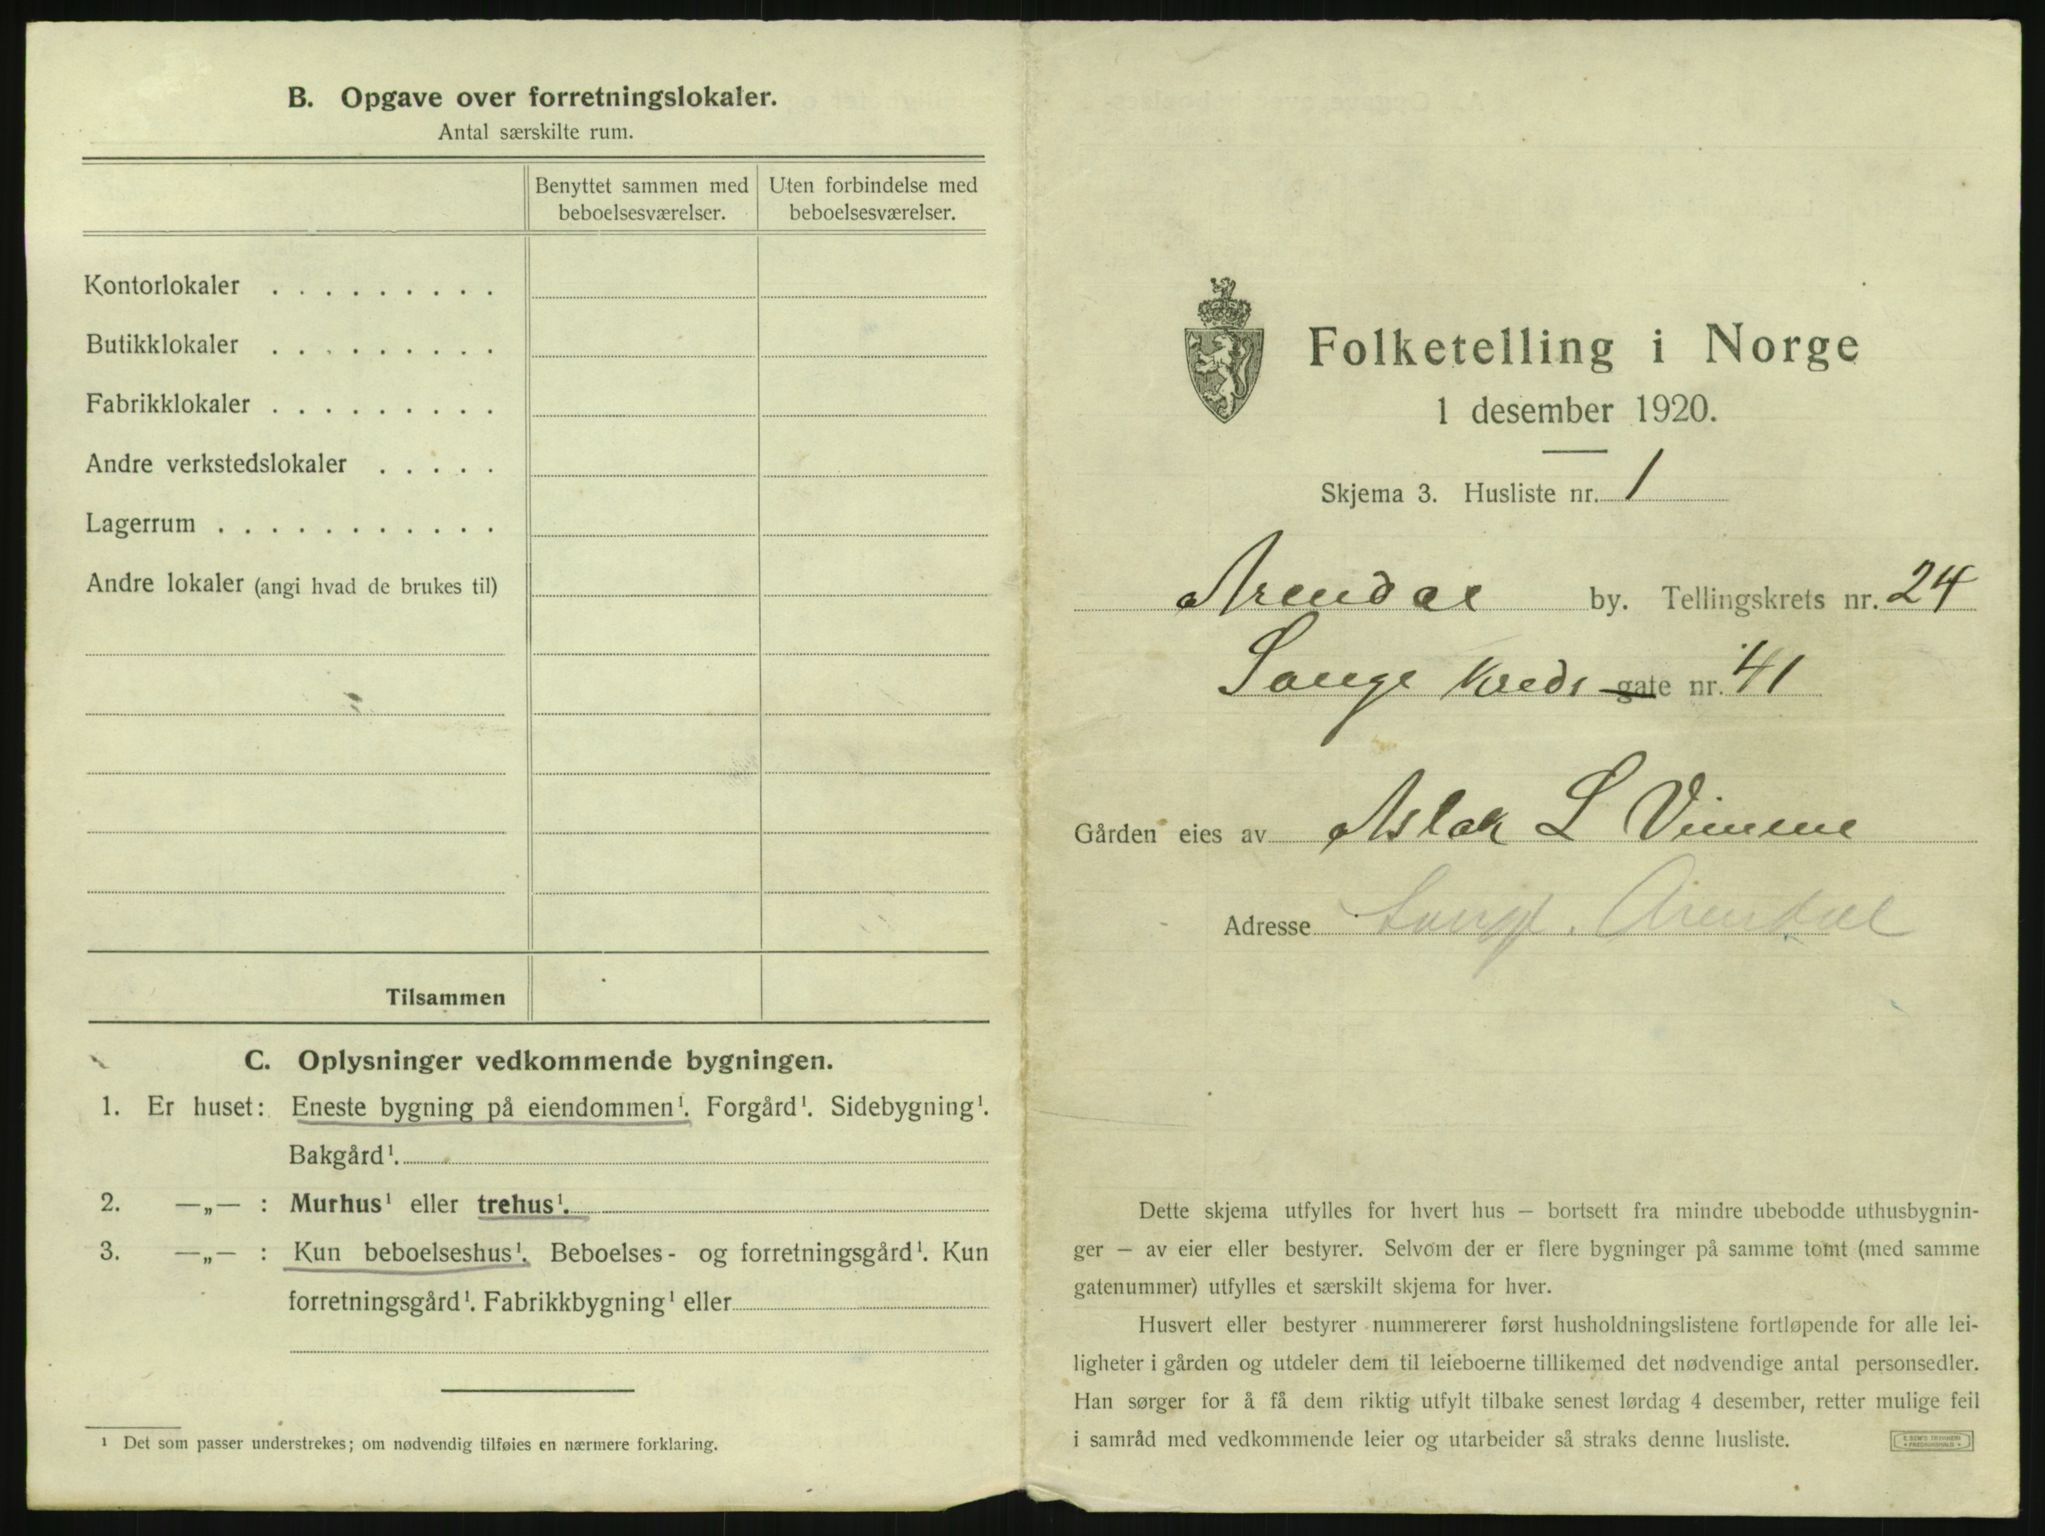 B. Opgave over forretningslokaler.
Antal særskilte rum.
Benyttet sammen med
beboelsesværelser.
Uten forbindelse med
beboelsesværelser.
Kontorlokaler . . . . . . . . .
Butikklokaler . . . . . . . . .
Fabrikklokaler . . . . . . . . .
Andre verkstedslokaler . . . . .
Lagerrum . . . . . . . . . . .
Andre lokaler (angi hvad de brukes til)
Tilsammen
C. Oplysninger vedkommende bygningen.
1. Er huset: Eneste bygning på eiendommen¹. Forgård¹. Sidebygning¹.
Bakgård¹.
2. —„— : Murhus¹ eller trehus¹.
3. —„— : Kun beboelseshus¹. Beboelses- og forretningsgård¹. Kun
forretningsgård¹. Fabrikkbygning¹ eller
¹ Det som passer understrekes; om nødvendig tilføies en nærmere forklaring.
Folketelling i Norge
1 desember 1920.
Skjema 3. Husliste nr. 1
Arendal by. Tellingskrets nr. 24
Songe Kreds gate nr. 41
Gården eies av Aslak L Vimme
Adresse Arendal
Dette skjema utfylles for hvert hus — bortsett fra mindre ubebodde uthusbygnin-
ger — av eier eller bestyrer. Selvom der er flere bygninger på samme tomt (med samme
gatenummer) utfylles et særskilt skjema for hver.
Husvert eller bestyrer nummererer først husholdningslistene fortløpende for alle lei-
ligheter i gården og utdeler dem til leieboerne tillikemed det nødvendige antal personsedler.
Han sørger for å få dem riktig utfylt tilbake senest lørdag 4 desember, retter mulige feil
i samråd med vedkommende leier og utarbeider så straks denne husliste.